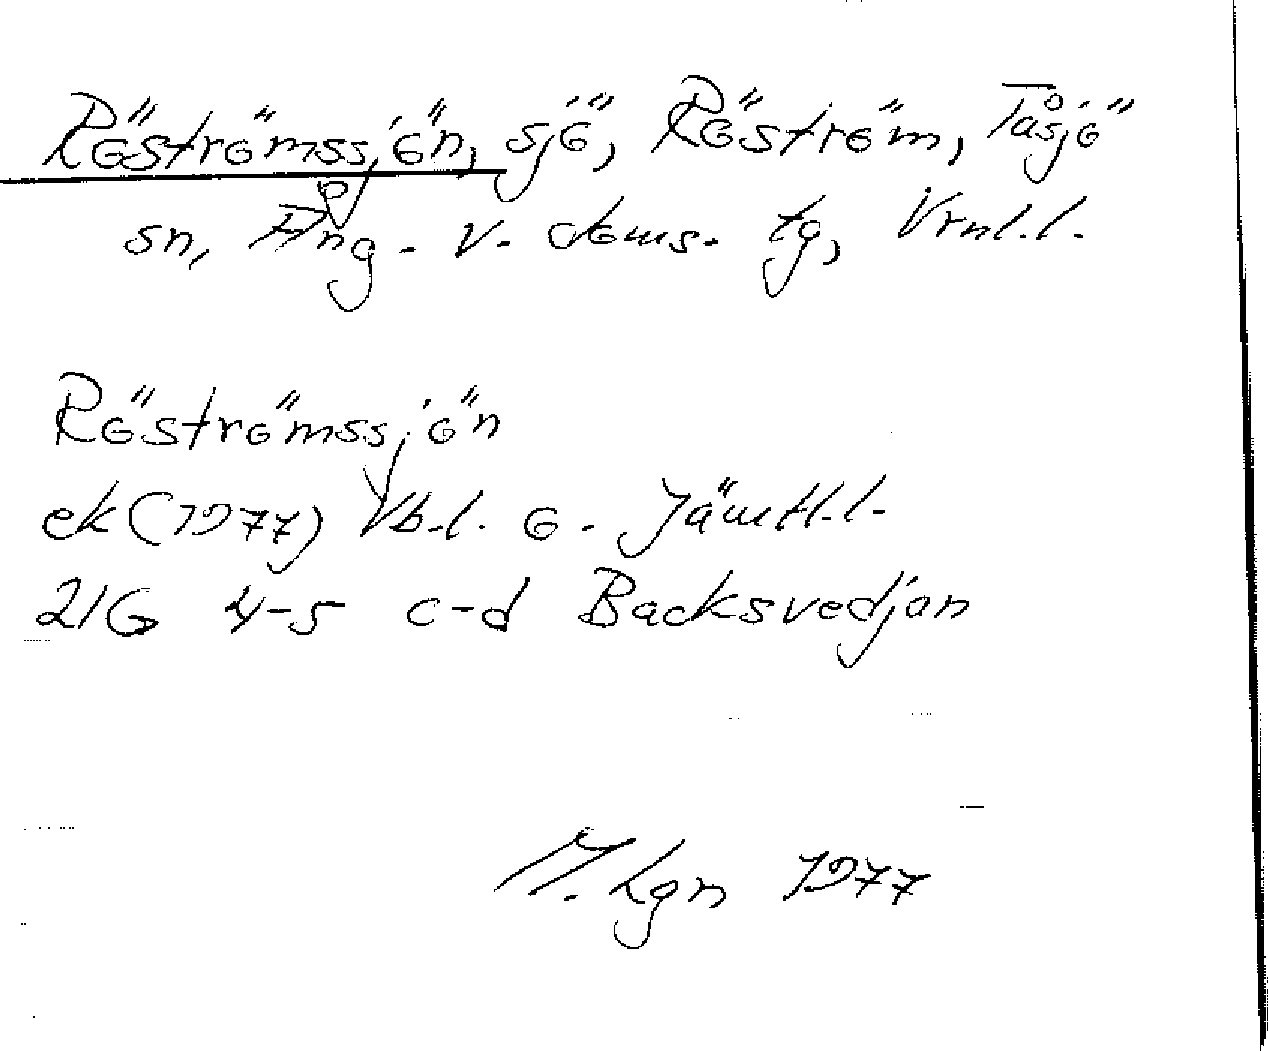 Röströmssjön, sjö, Röström, Tåsjö
sn, Ång. v. doms. tg, Vrnl.l.
Röströmssjön
ek (1977) Vb.l. o. Jämtl.l.
21G 4-5 c-d Backsvedjan
M. Lgn 1977